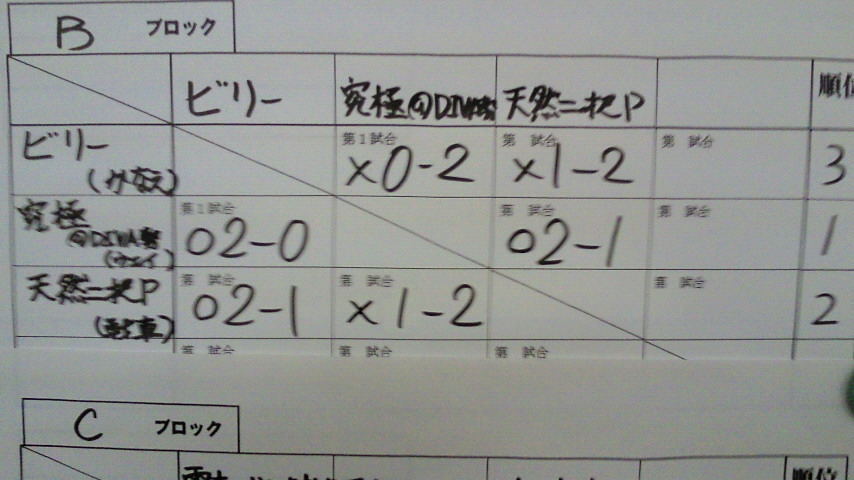 B ブロック
ビリー 究極@DIVA勢 天然二把P 順位
ビリー 第1試合 第 試合 第 試合
(かなえ) ×0-2 ×1-2 3
究極 第1試合 第 試合 第 試合
@DIVA勢 ○2-0 ○2-1 1
(ウェイ)
天然二把P 第 試合 第 試合 第 試合
○2-1 ×1-2 2
第 試合 第 試合 第 試合
C ブロック
順位